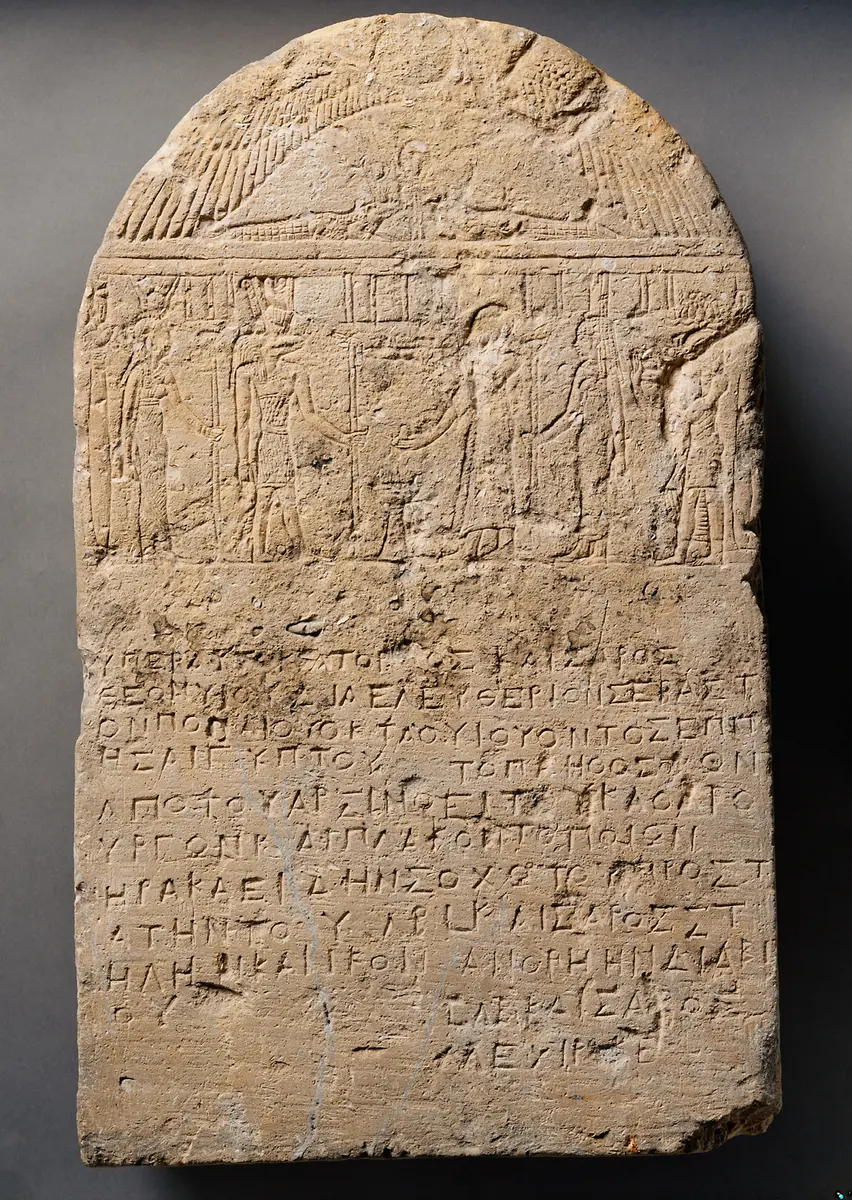 ΥΠΕΡΑΥΤΟΚΡΑΤΟΡΟΣ ΚΑΙΣΑΡΟΣ
ΘΕΟΝΥΙΟΥ ΔΙΑΕΛΕΥΘΕΡΙΟΝΣΕΒΑΣΤ
ΟΝΠΟΠΛΙΟΥΟΚΤΑΟΥΙΟΥΟΝΤΟΣΕΠΙΤ
ΗΣΑΙΓΥΠΤΟΥ
ΑΠΟΤΟΥΑΡΣΙΝΟΕΙΤΟΥΚΑΘΑΡΟ
ΥΡΓΩΝΚΑΙΠΛΑΚΟΝΤΟΠΟΙΩΝ
ΗΡΑΚΛΕΙΔΗΝΣΟΧΩΤΟΥΠΡΟΣΤ
ΑΤΗΝΤΟΥ ΛΒLΚΑΙΣΑΡΟΣΣΤ
ΗΛΗΝΚΑΙΙΚΟΝΑΝΟΡΗΗΝΔΙΑΒΙ
ΟΥ LΛΒΚΑΙΣΑΡΟΣ
ΜΕΧΙΡΚΕ